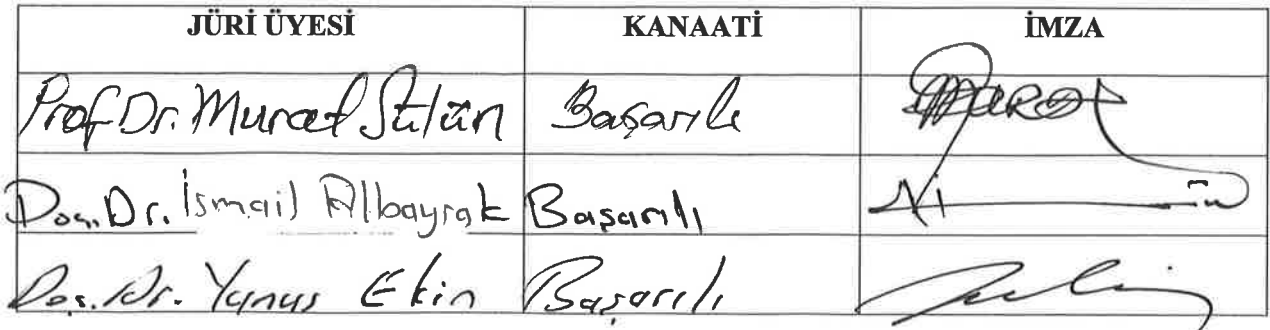 JÜRİ ÜYESİ KANAATİ İMZA
Prof Dr. Murat Sülün Başarılı
Doç. Dr. İsmail Albayrak Başarılı
Doç. Dr. Yunus Ekin Başarılı